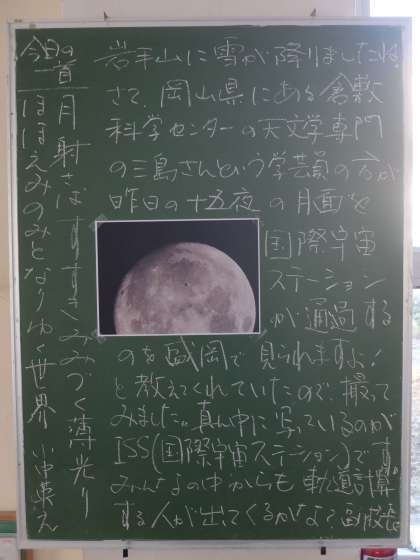 今日の
一首
月射さばすすきみみづく薄光り
ほほえみのみとなりゆく世界 小中英之
岩手山に雪が降りましたね
さて、岡山県にある倉敷
科学センターの天文学専門
の三島さんという学芸員の方が
昨日の十五夜の月面を
国際宇宙
ステーション
が通過する
のを盛岡で見られますよ!
と教えてくれていたので、撮って
みました。真ん中に写っているのが
ISS(国際宇宙ステーション)です
みんなの中からも軌道計算
する人が出てくるかな?副校長